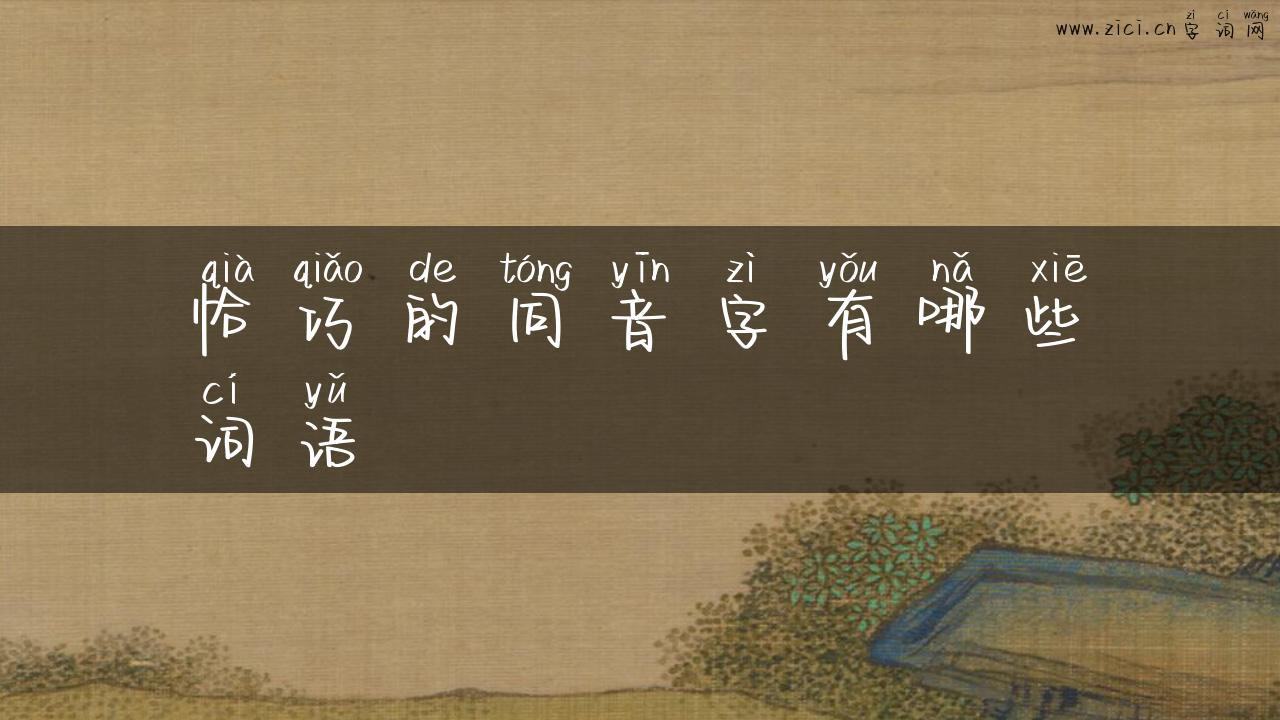 zì cí wǎng
www.zici.cn 字 词 网
qià qiǎo de tóng yīn zì yǒu nǎ xiē
恰 巧 的 同 音 字 有 哪 些
cí yǔ
词 语